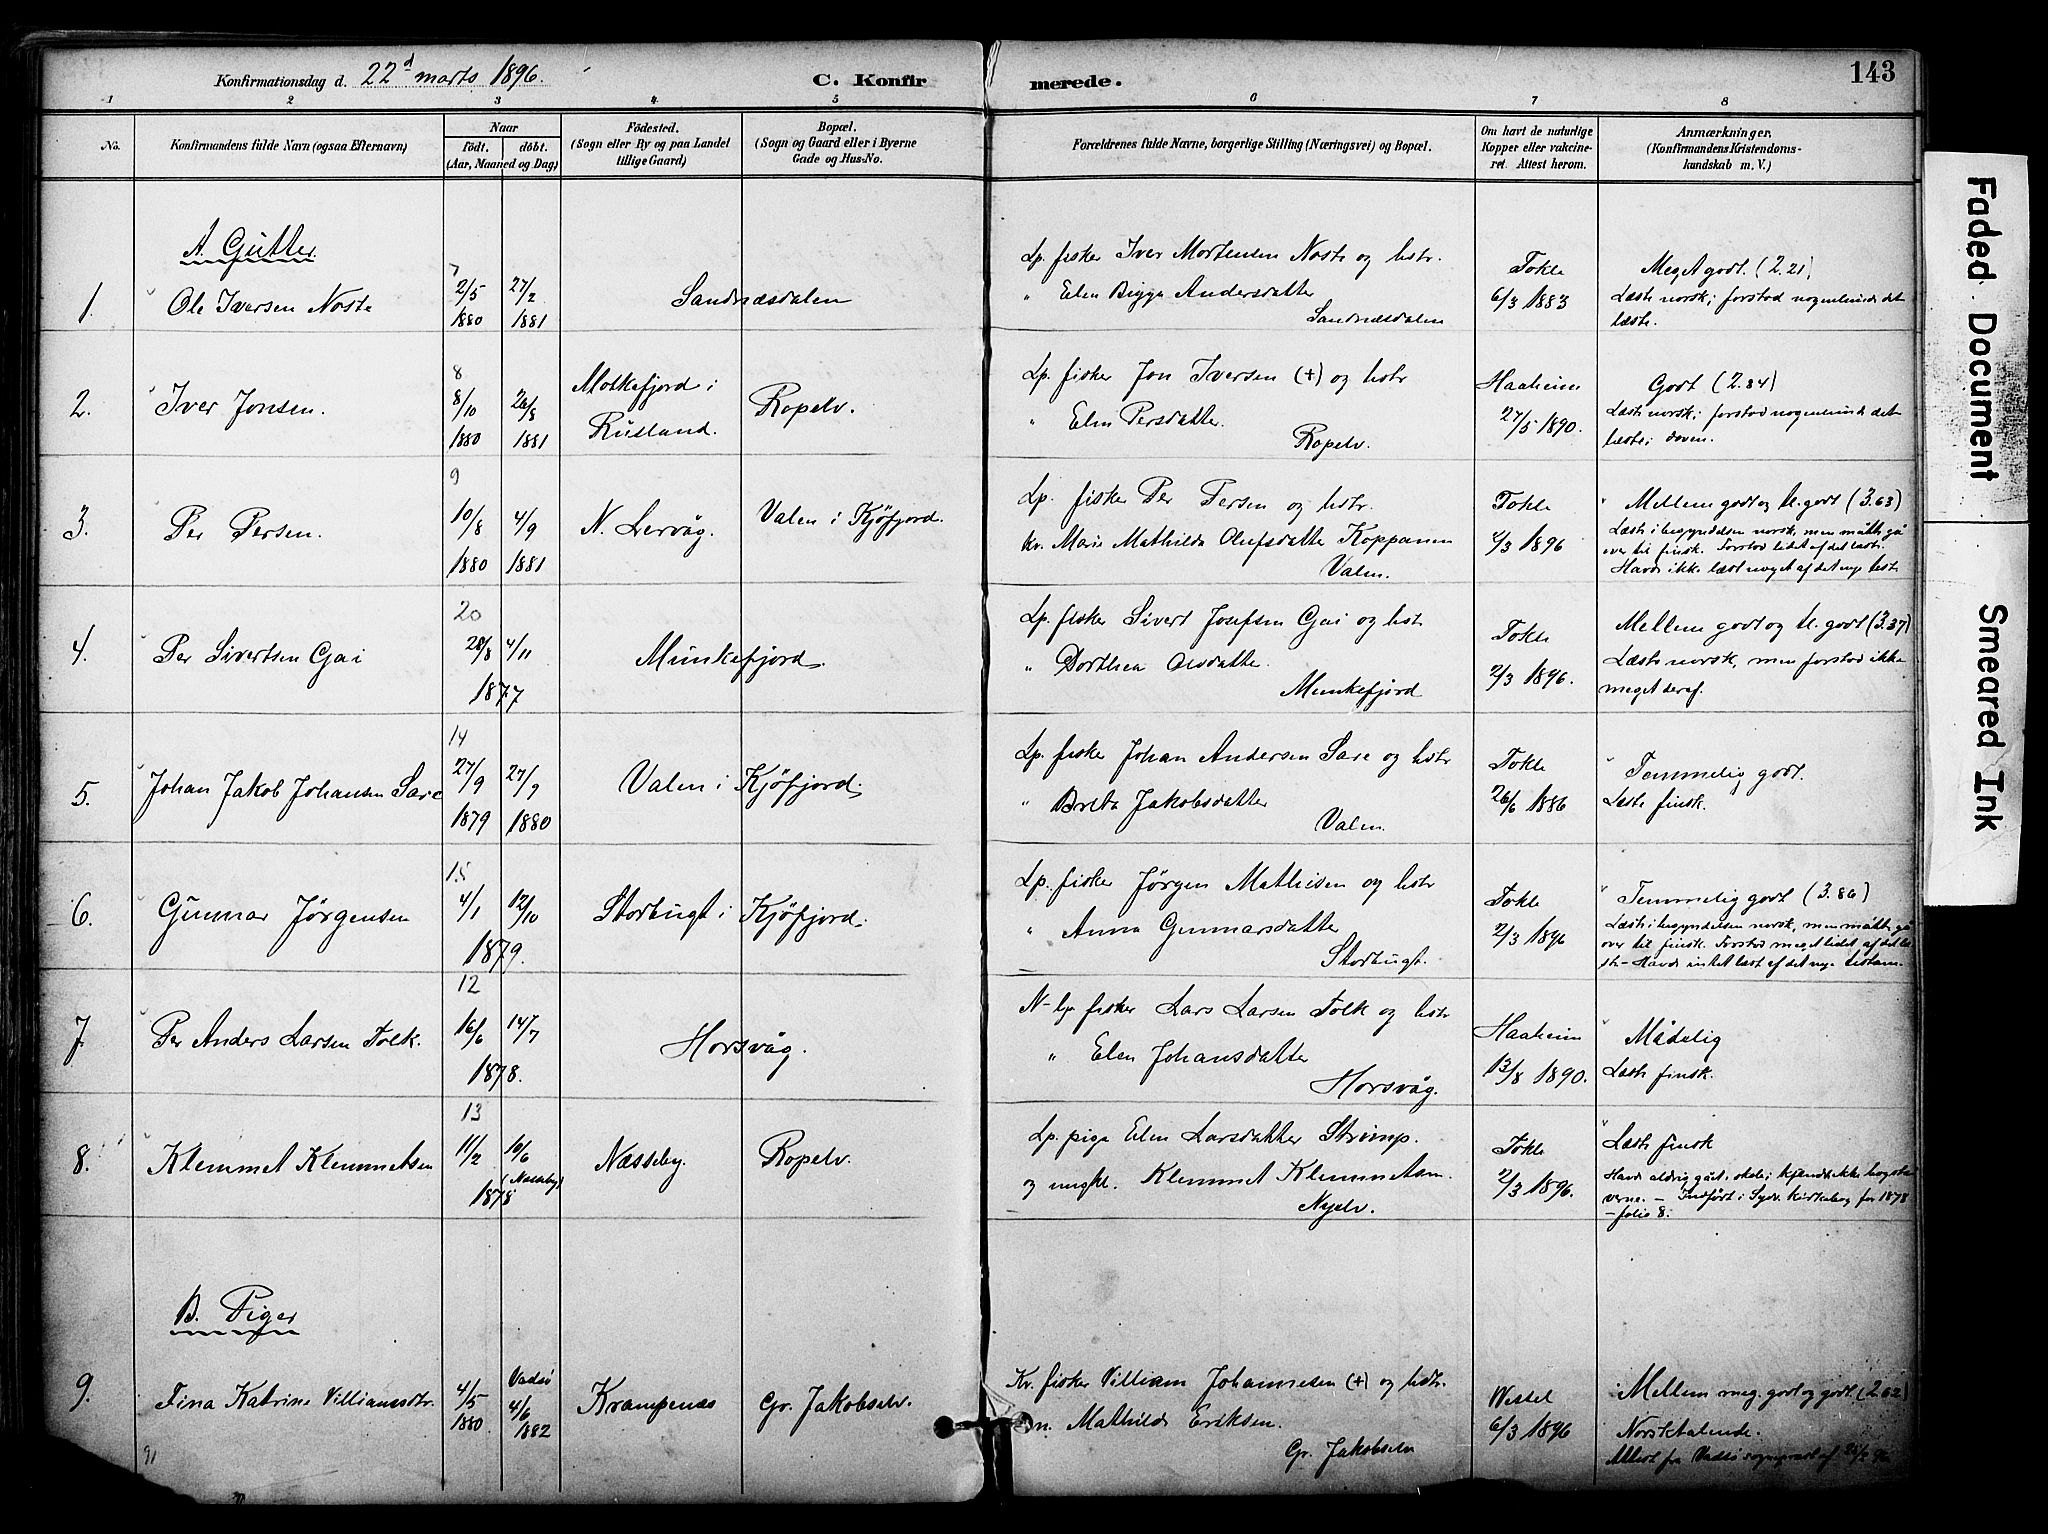 Konfirmationsdag d. 22d marts 1896.
C. Konfirmerede.
143
1 2 3 4 5 6 7 8
No.
Konfirmandens fulde Navn (ogsaa Efternavn)
Naar
født. døbt.
(Aar, Maaned og Dag)
Fødested.
(Sogn eller By og paa Landet
tillige Gaard)
Bopæl.
(Sogn og Gaard eller i Byerne
Gade og Hus-No.
Forældrenes fulde Navne, borgerlige Stilling (Næringsvei) og Bopæl.
Om havt de naturlige
Kopper eller vakcine-
ret. Attest herom.
Anmærkninger.
(Konfirmandens Kristendoms-
kundskab m. V.)
A. Gutter.
1. Ole Iversen Noste
7
2/5 1880
27/2 1881
Sandnæsdalen
Lp. fisker Iver Mortensen Noste og hstr.
" Elen Bigga Andersdatter
Sandnæsdalen
Tokle
6/3 1883
Meget godt. (2.21)
Læste norsk; forstod nogenlunde det
læste.
2. Iver Jonsen.
8
8/10 1880
26/8 1881
Motkefjord i
Rusland.
Ropelv.
Lp. fisker Jon Iversen (+) og hstr
" Elen Persdatter.
Ropelv.
Haaheim
27/5 1890.
Godt (2.84)
Læste norsk; forstod nogenlunde det
læste; doven.
3. Per Persen.
9
10/8 1880
4/9 1881
N. Lervåg.
Valen i Kjöfjord.
Lp. fisker Per Persen og hstr.
kv. Marie Mathilda Olufsdatter Koppanen
Valen.
Tokle
4/3 1896
" Mellem godt og tl. godt (3.63)
Læste i begyndelsen norsk, men måtte gå
over til finsk. Forstod lidet af det læste.
Havde ikke læst noget af det nye test.
4. Per Sivertsen Gai
20
28/8 4/11
1877
Munkefjord.
Lp. fisker Sivert Josefsen Gai og hstr
" Dorthea Olsdatter.
Munkefjord
Tokle
2/3 1896.
Mellem godt og tl. godt (3.37)
Læste norsk, men forstod ikke
meget deraf.
5. Johan Jakob Johansen Sare
14
27/9 1879
27/9 1880
Valen i Kjöfjord.
Lp. fisker Johan Andersen Sare og hstr
" Brita Jakobsdatter
Valen.
Tokle
26/6 1886
" Temmelig godt.
Læste finsk.
6. Gunnar Jørgensen
15
4/1 12/10
1879.
Storbugt i Kjöfjord.
Lp. fisker Jørgen Mathisen og hstr
" Anna Gunnarsdatter
Storbugt.
Tokle
2/3 1896
" Temmelig godt (3.86)
Læste i begyndelsen norsk, men måtte gå
over til finsk. Forstod meget lidet af det læ-
ste - Havde intet læst af det nye testam.
7. Per Anders Larsen Tolk.
12
16/6 14/7
1878.
Horsvåg.
N-lp fisker Lars Larsen Tolk og hstr
" Elen Johansdatter
Horsvåg.
Haaheim
13/8 1890.
" Mådelig
Læste finsk.
8. Klemmet Klemmetsen
13
11/2 10/6
(Næsseby)
1878
Næsseby.
Ropelv.
Lp. pige Elen Larsdatter Strimp.
og ungkl. Klemmet Klemmetsen.
Nyelv.
Tokle
2/3 1896.
" Læste finsk
Havde aldrig gået i skole; kjendte ikke bogsta-
verne. - Indført i Sydv. kirkebog for 1878
- folio 8.
B. Piger
9. Tina Katrine Villiamsdtr.
4/5 1880
Vadsö
4/6 1882
Krampenæs
Gr. Jakobselv.
Kv. fisker Villiam Johannesen (+) og hstr.
n. Mathilde Eriksen.
Gr. Jakobselv
Wessel
6/3 1896
" Mellem meg. godt og godt (2.62)
Norsktalende.
Attest fra Vadsö sognepræst af 25/2 96
91
Faded Document
Smeared Ink